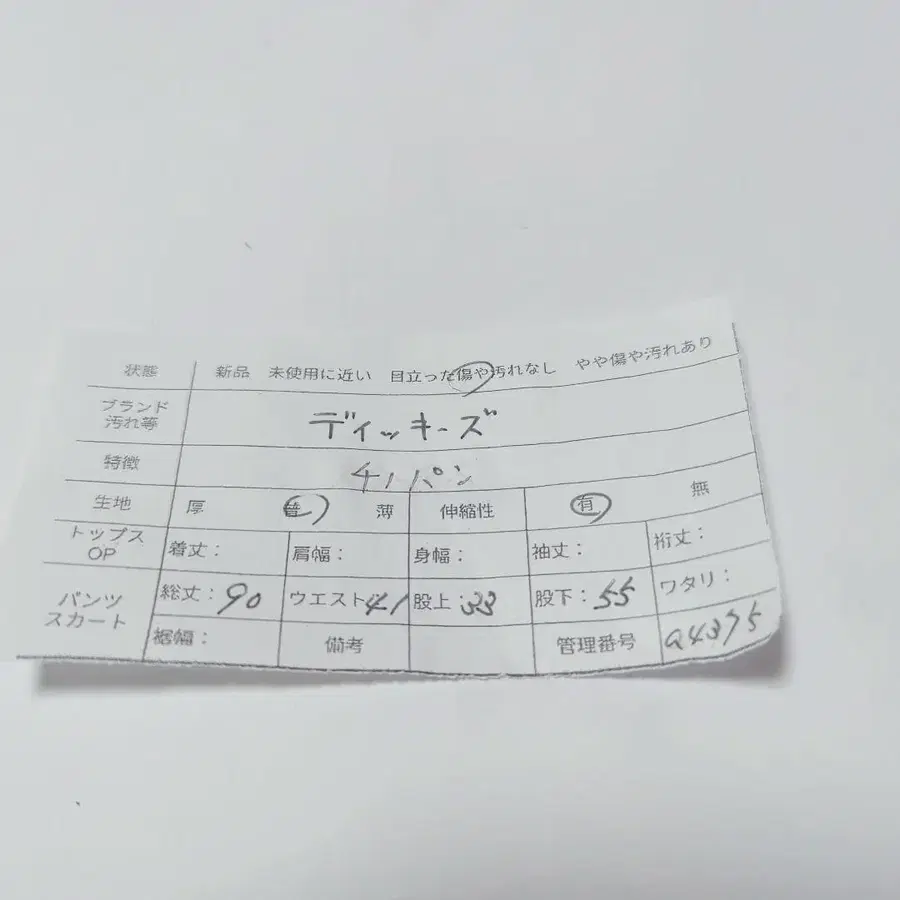 状態 新品 未使用に近い 目立った傷や汚れなし やや傷や汚れあり
ブランド 汚れ等 ディッキーズ
特徴 チノパン
生地 厚 普 薄 伸縮性 有 無
トップス OP 着丈: 肩幅: 身幅: 袖丈: 裄丈:
パンツ スカート 総丈:90 ウエスト:41 股上:33 股下:55 ワタリ:
裾幅: 備考 管理番号 a4375